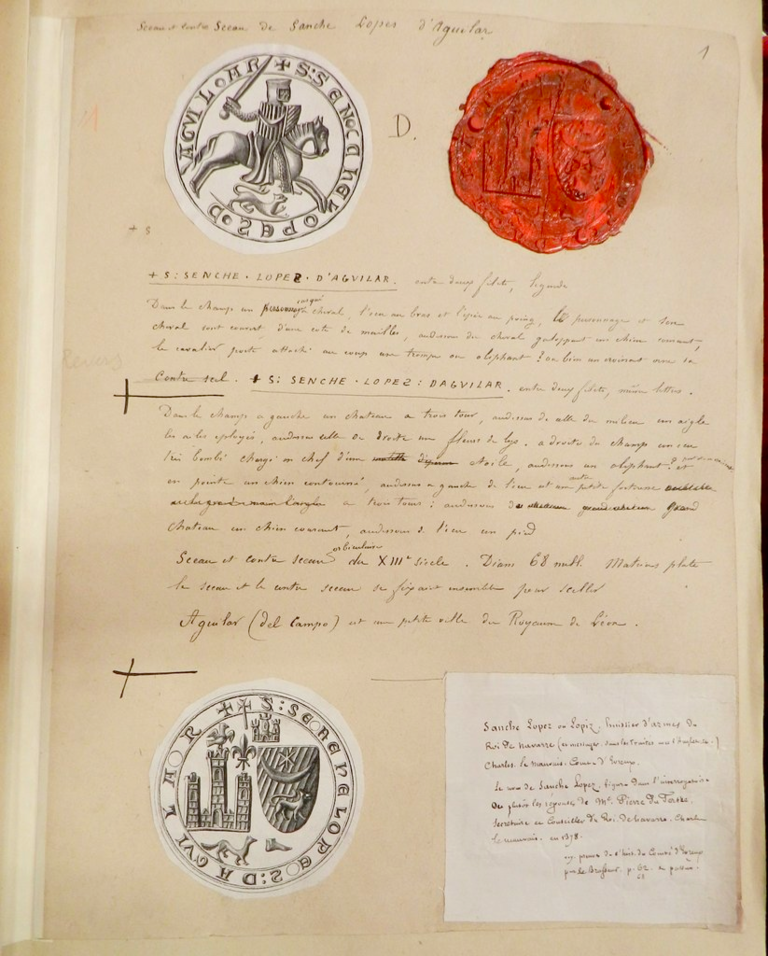 Sceau et contre Sceau de Sanche Lopes d'Aguilar
1
+ S: SENCHE LOPES: D AGVILOAR
D.
+ s
+ S: SENCHE · LOPEZ · D'AGVILAR. entre deux filets, légende
Dans le champ un personnage à cheval, l'écu au bras et l'épée au poing, le personnage et son
cheval sont couvert d'une cote de mailles, au dessous du cheval galoppant un chien courant,
le cavalier porte attaché au coup une trompe ou oliphant? ou bien un
Revers
Contre scel. + S: SENCHE · LOPEZ: DAGVILAR. entre deux filets, même lettres.
Dans le champ a gauche un chateau a trois tour, au dessus de celle du milieu un aigle
les ailes eployés, au dessus celle de droite une fleurs de lys. a droite du champ un écu
très bombé chargé en chef d'une etoile, au dessous un oliphant? et
en pointe un chien contourné, au dessus a gauche de l'écu est une autre petite forteresse
a trois tours: au dessous du grand
chateau un chien courant, au dessous de l'écu un pied
Sceau et contre sceau orbiculaire du XIIIe siècle. Diam 68 mill. Matrices plate
le sceau et le contre sceau se fixait ensemble pour sceller
Aguilar (del Campo) est une petite ville du Royaume de Léon.
+ S: SENCHE LOPES: DAGVILAOR
Sanche Lopez ou Lopiz. huissier d'armes du
Roi de Navarre
Charles le Mauvais. Comte d'Evreux.
Le nom de Sanche Lopez figure dans l'interrogatoire
de Me Pierre du Tertre,
Secretaire et Conseiller du Roi de Navarre. Charles
le mauvais. en 1378.
du Comté d'Evreux
par le Brasseur. p. 62.